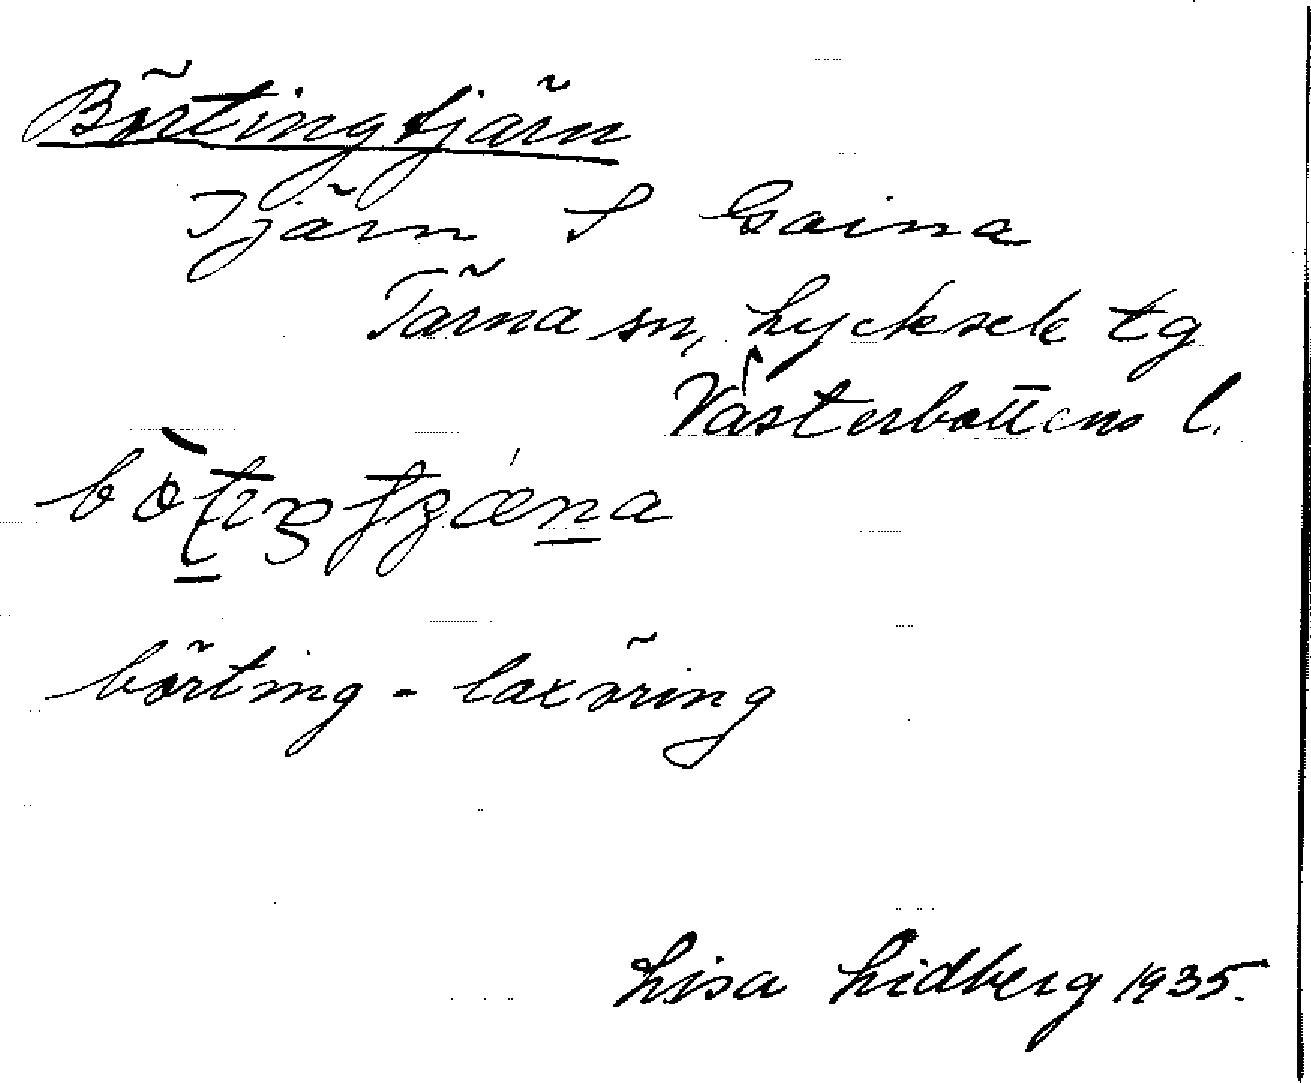 Börtingtjärn
Tjärn S Gaina
Tärna sn, Lycksele tg
Västerbottens l.
börting - laxöring
Lisa Lidberg 1935.